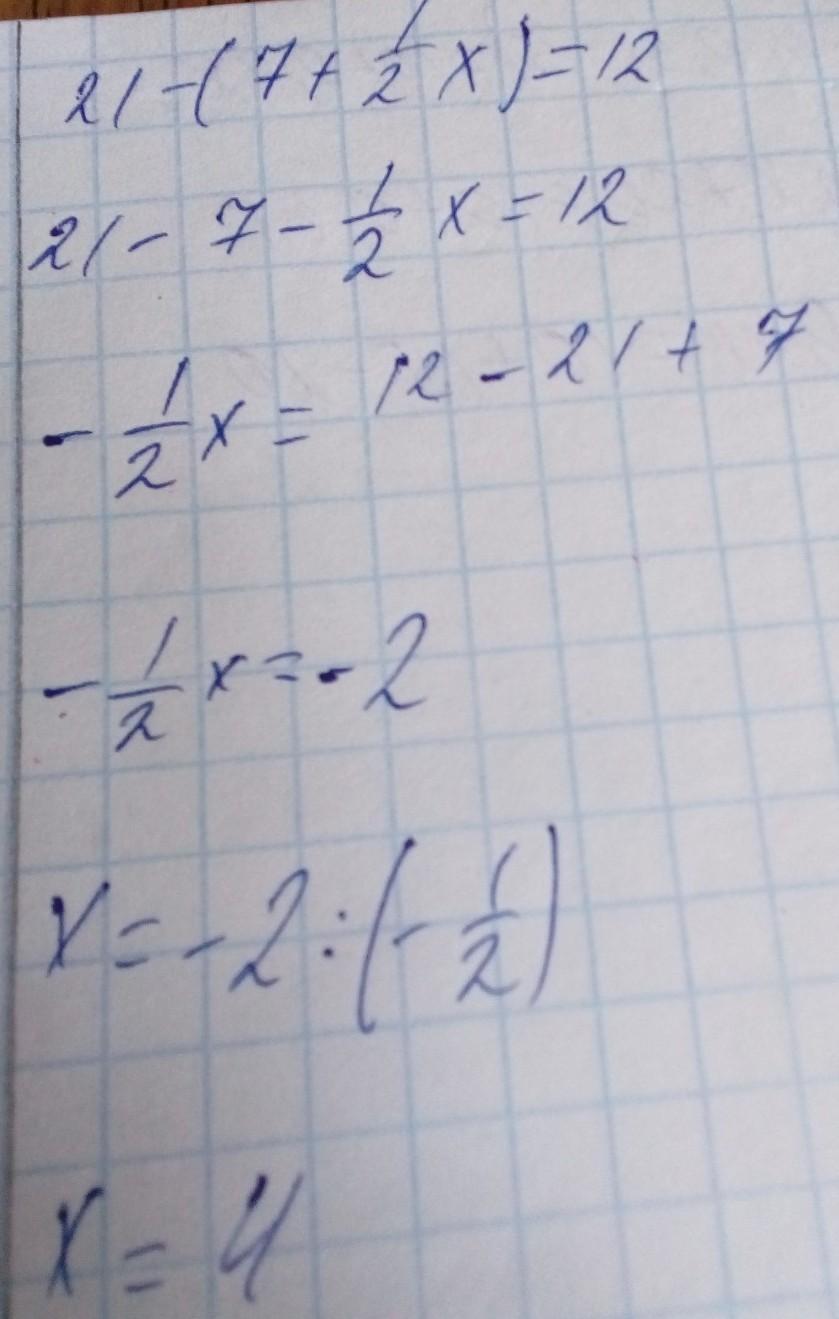 21-(7+1/2x)=12
21-7-1/2x=12
-1/2x=12-21+7
-1/2x=-2
x=-2:(-1/2)
x=4